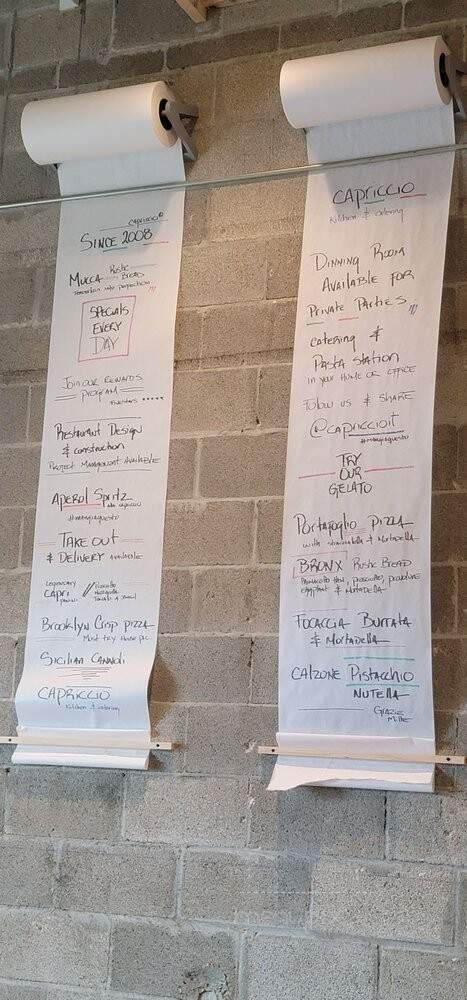 CAPRICCIO
SINCE 2008
MUCCA Rustic
BREAD
SPECIALS
EVERY
DAY
JOIN OUR REWARDS
PROGRAM
Fivestars
RESTAURANT DESIGN
& CONSTRUCTION
PROJECT MANAGEMENT AVAILABLE
APEROL SPRITZ
#mangiaquesto
TAKE OUT
& DELIVERY AVAILABLE
Legendary
CAPRI
Prosciutto
Tomato
BROOKLYN CRISP PIZZA
MUST TRY
SICILIAN CANNOLI
CAPRICCIO
Kitchen & Catering
CAPRICCIO
Kitchen & Catering
DINNING ROOM
AVAILABLE FOR
PRIVATE PARTIES
CATERING &
PASTA STATION
IN YOUR HOME OR OFFICE
FOLLOW US & SHARE
@CAPRICCIOIT
#mangiaquesto
TRY
OUR
GELATO
PORTAFOGLIO PIZZA
with stracciatella & MORTADELLA
BRONX RUSTIC BREAD
EGGPLANT & MORTADELLA
FOCACCIA BURRATA
& MORTADELLA
CALZONE PISTACCHIO
NUTELLA
GRAZIE
MILLE